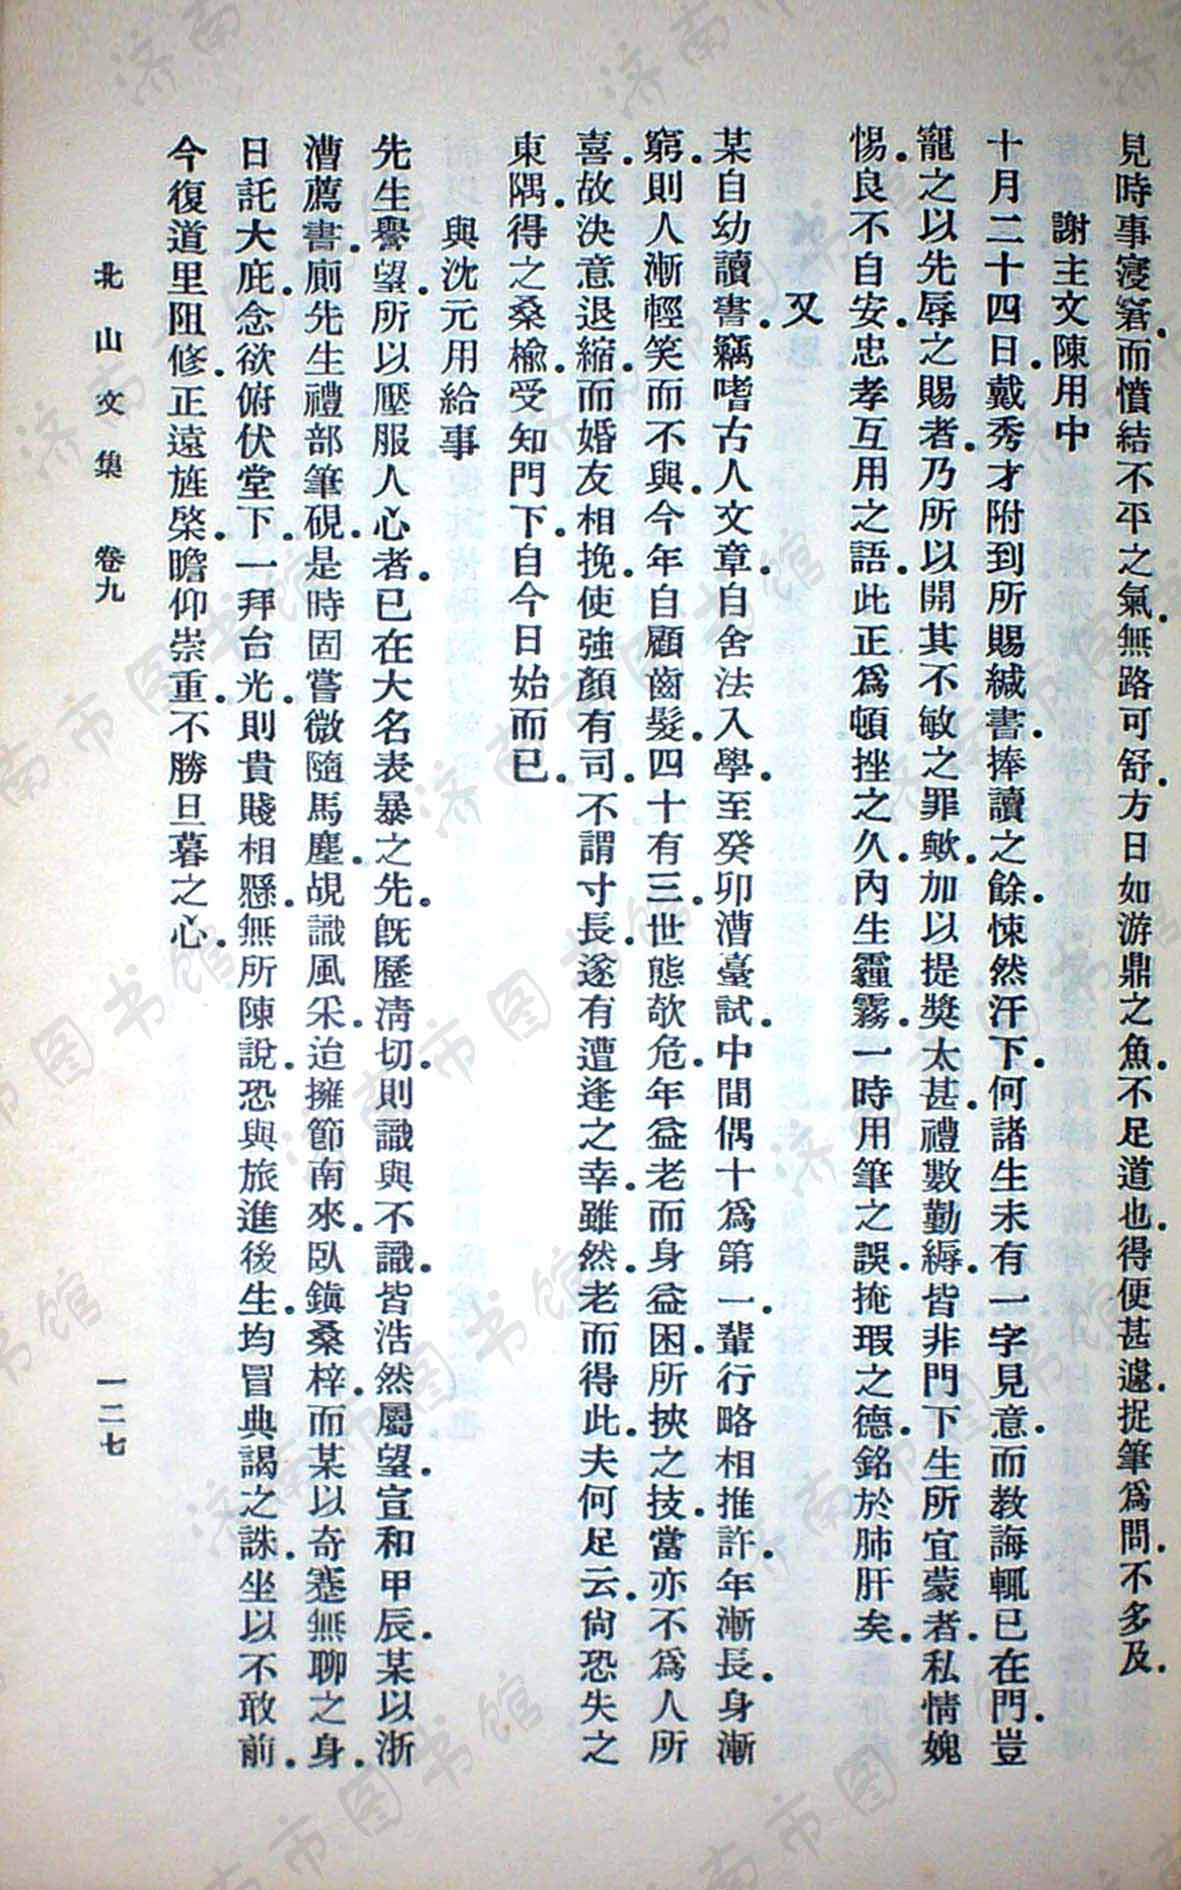 見時事寖窘.而憤結不平之氣.無路可舒.方日如游鼎之魚.不足道也.得便甚遽.捉筆爲問.不多及.
謝主文陳用中
十月二十四日.戴秀才附到所賜緘書.捧讀之餘.悚然汗下.何諸生未有一字見意.而教誨輒已在門.豈
寵之以先辱之賜者.乃所以開其不敏之罪歟.加以提獎太甚.禮數勤縟.皆非門下生所宜蒙者.私情媿
惕.良不自安.忠孝互用之語.此正爲頓挫之久.內生霾霧.一時用筆之誤.掩瑕之德.銘於肺肝矣.
又
某自幼讀書.竊嗜古人文章.自舍法入學.至癸卯漕臺試.中間偶十爲第一.輩行略相推許.年漸長.身漸
窮.則人漸輕笑而不與.今年自顧齒髮.四十有三.世態欹危.年益老而身益困.所挾之技.當亦不爲人所
喜.故決意退縮.而婚友相挽.使強顏有司.不謂寸長.遂有遭逢之幸.雖然.老而得此.夫何足云.尙恐失之
東隅.得之桑榆.受知門下.自今日始而已.
與沈元用給事
先生譽望.所以壓服人心者.已在大名表暴之先.旣歷淸切.則識與不識.皆浩然屬望.宣和甲辰.某以浙
漕薦書.廁先生禮部筆硯.是時固嘗微隨馬塵.覘識風采.迨擁節南來.臥鎭桑梓.而某以奇蹇無聊之身.
日託大庇.念欲俯伏堂下.一拜台光.則貴賤相懸.無所陳說.恐與旅進後生.均冒典謁之誅.坐以不敢前.
今復道里阻修.正遠旌棨.瞻仰崇重.不勝旦暮之心.
北山文集 卷九 一二七
济南市图书馆